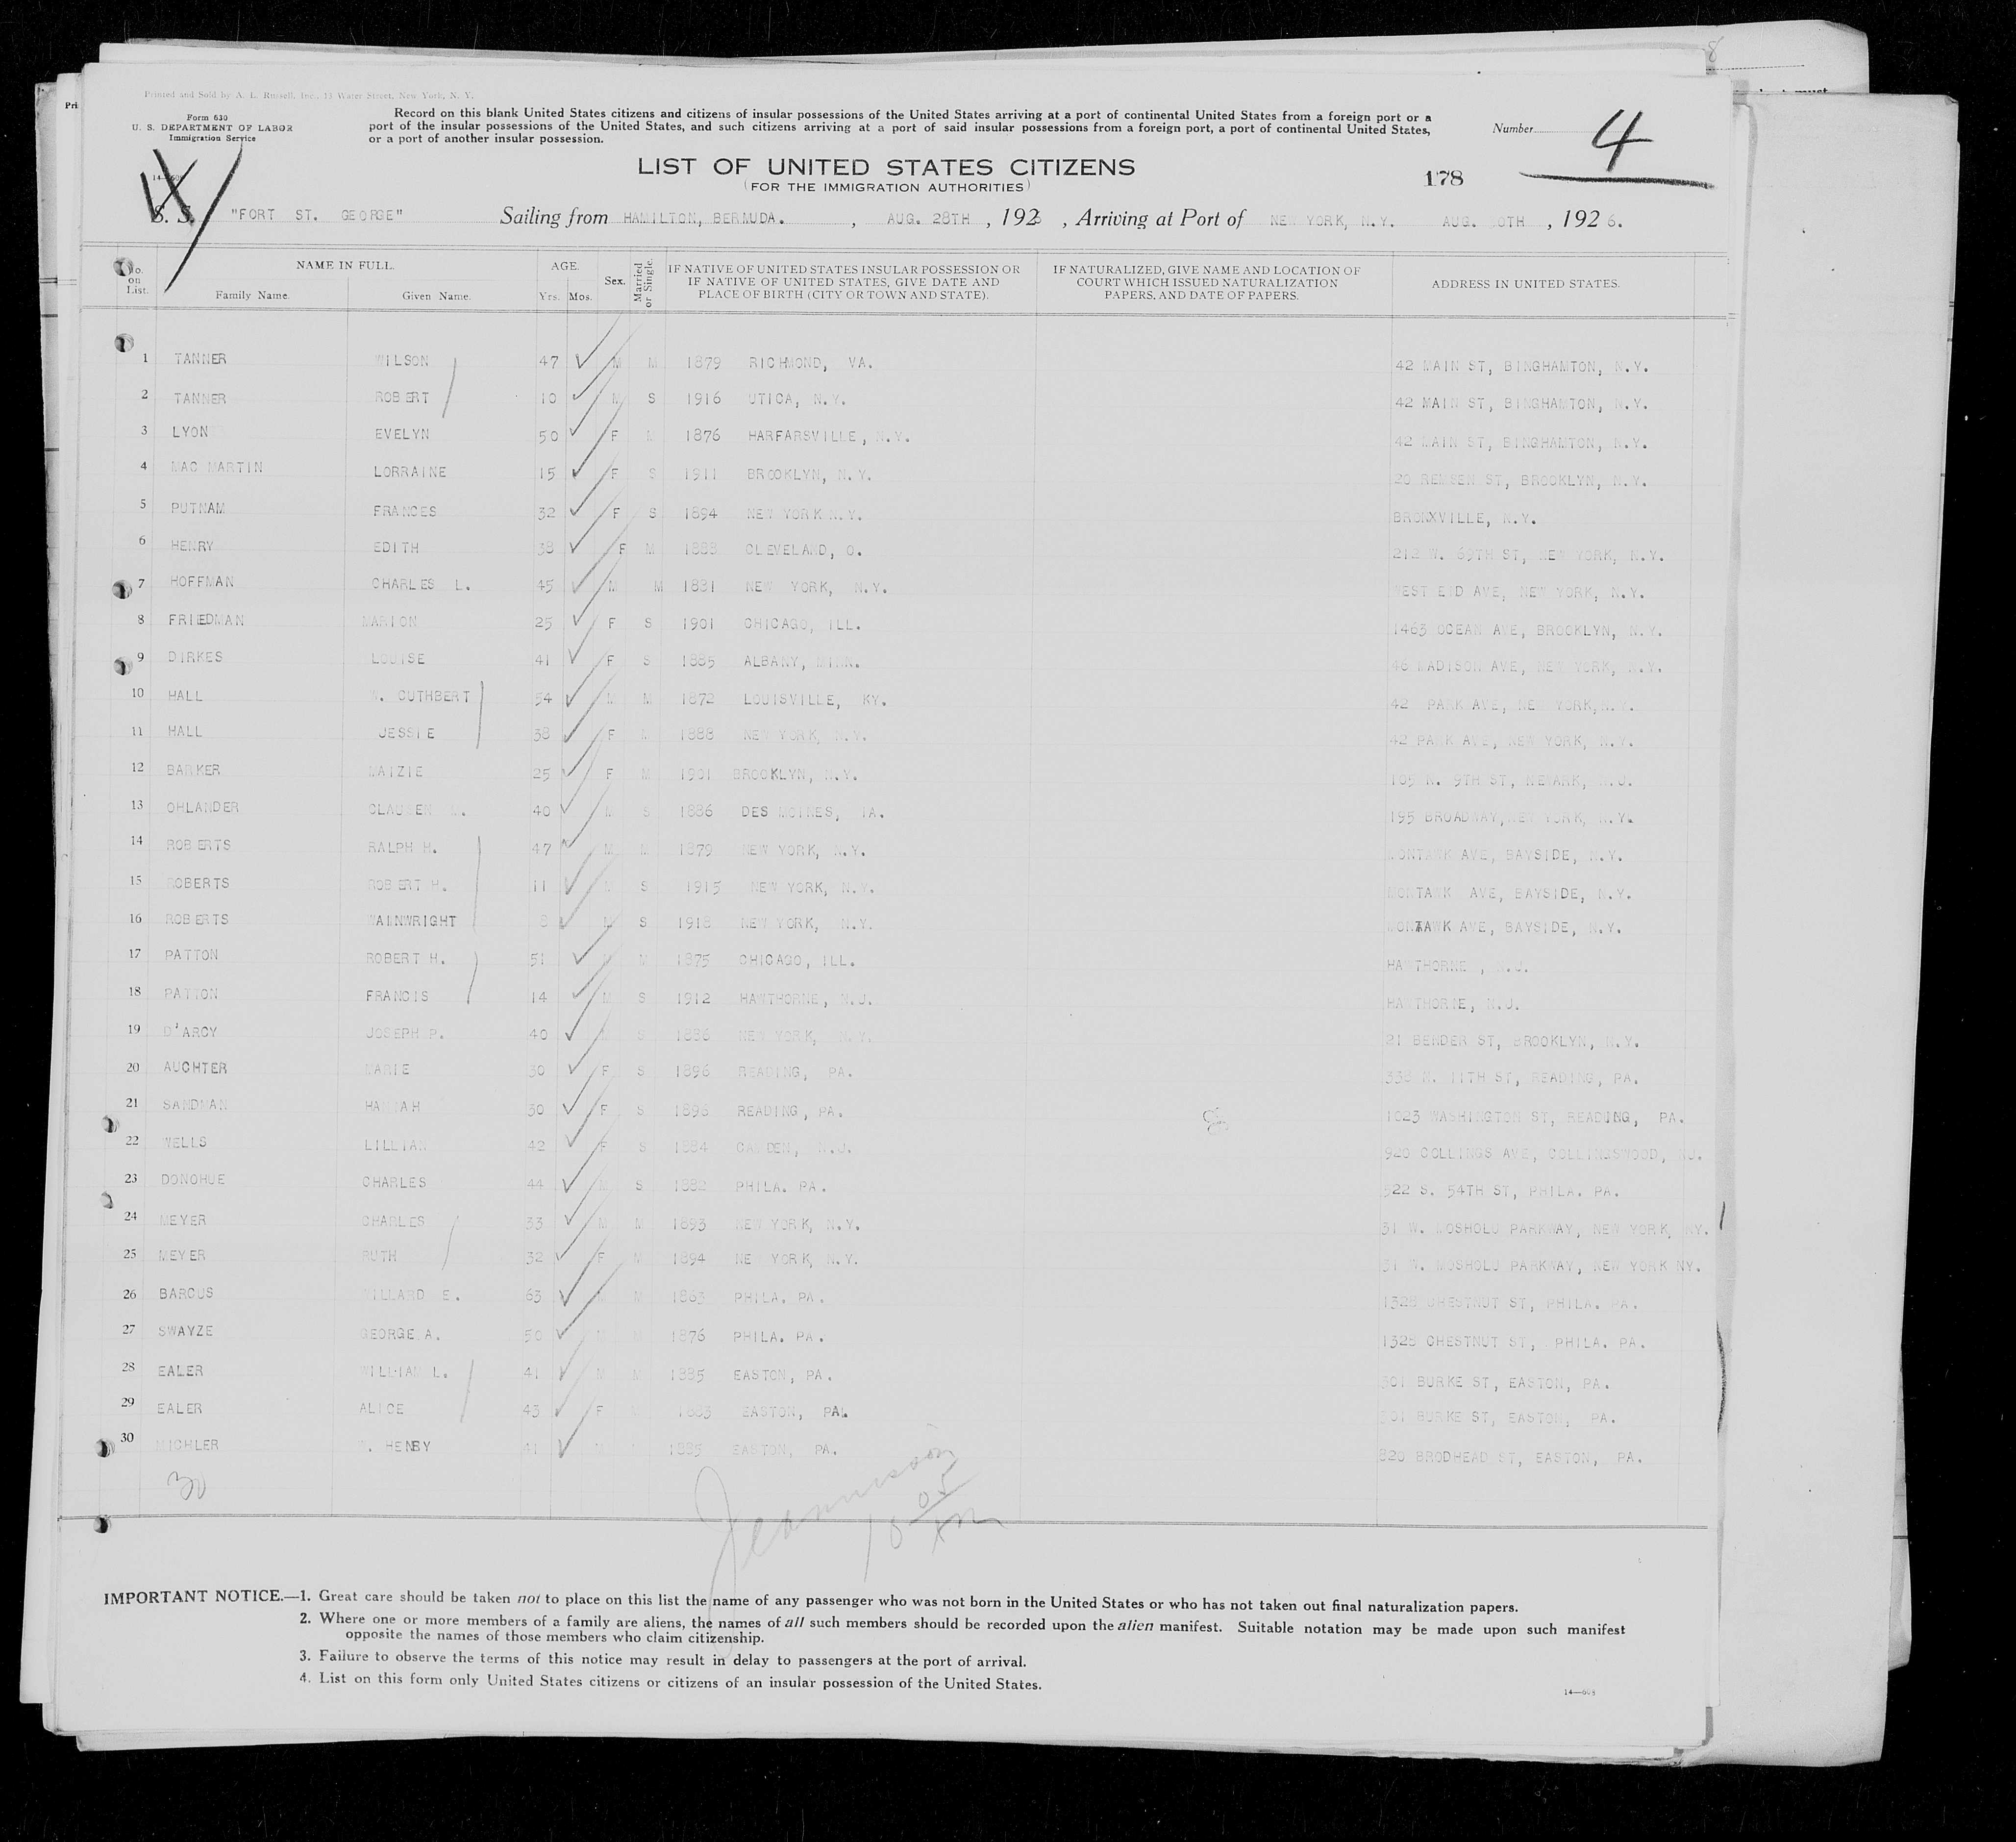 Printed and Sold by A. L. Russell, Inc., 13 Water Street, New York, N. Y.
Form 630
U. S. DEPARTMENT OF LABOR
Immigration Service
Record on this blank United States citizens and citizens of insular possessions of the United States arriving at a port of continental United States from a foreign port or a
port of the insular possessions of the United States, and such citizens arriving at a port of said insular possessions from a foreign port, a port of continental United States,
or a port of another insular possession.
Number 4
LIST OF UNITED STATES CITIZENS
(FOR THE IMMIGRATION AUTHORITIES)
178
S. S. "FORT ST. GEORGE" Sailing from HAMILTON, BERMUDA. , AUG. 28TH , 192 , Arriving at Port of NEW YORK, N.Y. AUG. 0TH , 1926.
No. on List. NAME IN FULL. Family Name. Given Name. AGE. Yrs. Mos. Sex. Married or Single. IF NATIVE OF UNITED STATES INSULAR POSSESSION OR IF NATIVE OF UNITED STATES, GIVE DATE AND PLACE OF BIRTH (CITY OR TOWN AND STATE). IF NATURALIZED, GIVE NAME AND LOCATION OF COURT WHICH ISSUED NATURALIZATION PAPERS, AND DATE OF PAPERS. ADDRESS IN UNITED STATES.
1 TANNER WILSON 47 M M 1879 RICHMOND, VA. 42 MAIN ST, BINGHAMTON, N.Y.
2 TANNER ROBERT 10 M S 1916 UTICA, N.Y. 42 MAIN ST, BINGHAMTON, N.Y.
3 LYON EVELYN 50 F M 1876 HARFARSVILLE, N.Y. 42 MAIN ST, BINGHAMTON, N.Y.
4 MAC MARTIN LORRAINE 15 F S 1911 BROOKLYN, N.Y. 20 REMSEN ST, BROOKLYN, N.Y.
5 PUTNAM FRANCES 32 F S 1894 NEW YORK N.Y. BRONXVILLE, N.Y.
6 HENRY EDITH 38 F M 1888 CLEVELAND, O. 212 W. 69TH ST, NEW YORK, N.Y.
7 HOFFMAN CHARLES L. 45 M M 1881 NEW YORK, N.Y. WEST END AVE, NEW YORK, N.Y.
8 FRIEDMAN MARION 25 F S 1901 CHICAGO, ILL. 1463 OCEAN AVE, BROOKLYN, N.Y.
9 DIRKES LOUISE 41 F S 1885 ALBANY, MINN. 46 MADISON AVE, NEW YORK, N.Y.
10 HALL W. CUTHBERT 54 M M 1872 LOUISVILLE, KY. 42 PARK AVE, NEW YORK, N.Y.
11 HALL JESSIE 38 F M 1888 NEW YORK, N.Y. 42 PARK AVE, NEW YORK, N.Y.
12 BARKER MAIZIE 25 F M 1901 BROOKLYN, N.Y. 105 N. 9TH ST, NEWARK, N.J.
13 OHLANDER CLAUSEN M. 40 M S 1886 DES MOINES, IA. 195 BROADWAY, NEW YORK, N.Y.
14 ROBERTS RALPH H. 47 M M 1879 NEW YORK, N.Y. MONTAWK AVE, BAYSIDE, N.Y.
15 ROBERTS ROBERT H. 11 M S 1915 NEW YORK, N.Y. MONTAWK AVE, BAYSIDE, N.Y.
16 ROBERTS WAINWRIGHT 8 M S 1918 NEW YORK, N.Y. MONTAWK AVE, BAYSIDE, N.Y.
17 PATTON ROBERT H. 51 M 1875 CHICAGO, ILL. HAWTHORNE , N.J.
18 PATTON FRANCIS 14 M S 1912 HAWTHORNE, N.J. HAWTHORNE, N.J.
19 D'ARCY JOSEPH P. 40 S 1886 NEW YORK, N.Y. 21 BENDER ST, BROOKLYN, N.Y.
20 AUCHTER MARIE 30 F S 1896 READING, PA. 338 N. 11TH ST, READING, PA.
21 SANDMAN HANNAH 30 F S 1896 READING, PA. 1023 WASHINGTON ST, READING, PA.
22 WELLS LILLIAN 42 F S 1884 CAMDEN, N.J. 920 COLLINGS AVE, COLLINGSWOOD, NJ.
23 DONOHUE CHARLES 44 M S 1882 PHILA. PA. 522 S. 54TH ST, PHILA. PA.
24 MEYER CHARLES 33 M M 1893 NEW YORK, N.Y. 31 W. MOSHOLU PARKWAY, NEW YORK, NY.
25 MEYER RUTH 32 F M 1894 NEW YORK, N.Y. 31 W. MOSHOLU PARKWAY, NEW YORK NY.
26 BARCUS WILLARD E. 63 M 1863 PHILA. PA. 1328 CHESTNUT ST, PHILA. PA.
27 SWAYZE GEORGE A. 50 M M 1876 PHILA. PA. 1328 CHESTNUT ST, PHILA. PA.
28 EALER WILLIAM L. 41 M M 1885 EASTON, PA. 301 BURKE ST, EASTON, PA.
29 EALER ALICE 43 F 1883 EASTON, PA. 301 BURKE ST, EASTON, PA.
30 MICHLER W. HENRY 41 M 1885 EASTON, PA. 820 BRODHEAD ST, EASTON, PA.
30
10 05 am
IMPORTANT NOTICE.—1. Great care should be taken not to place on this list the name of any passenger who was not born in the United States or who has not taken out final naturalization papers.
2. Where one or more members of a family are aliens, the names of all such members should be recorded upon the alien manifest. Suitable notation may be made upon such manifest
opposite the names of those members who claim citizenship.
3. Failure to observe the terms of this notice may result in delay to passengers at the port of arrival.
4. List on this form only United States citizens or citizens of an insular possession of the United States.
14—608